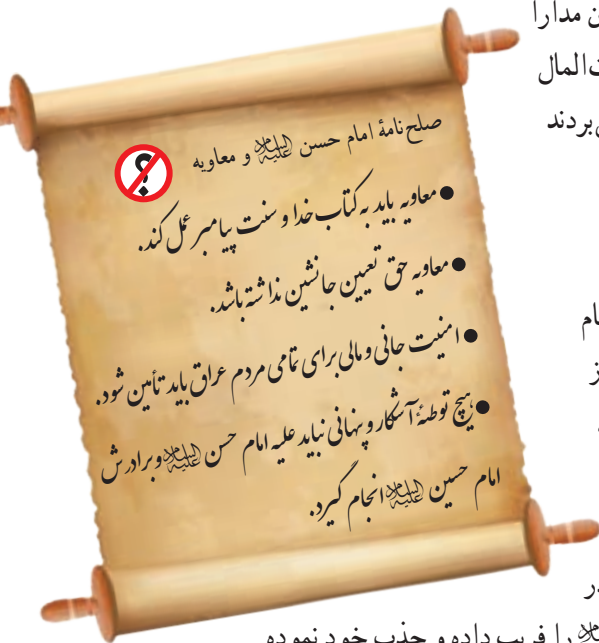 ن مدارا
ت‌المال
ی‌بردند
صلح‌نامهٔ امام حسن علیه‌السلام و معاویه
؟
● معاویه باید به کتاب خدا و سنت پیامبر عمل کند.
● معاویه حق تعیین جانشین نداشته باشد.
● امنیت جانی و مالی برای تمامی مردم عراق باید تأمین شود.
● هیچ توطئهٔ آشکار و پنهانی نباید علیه امام حسن علیه‌السلام و برادرش
امام حسین علیه‌السلام انجام گیرد.
ام
ز
در
را فریب داده و جذب خود نموده